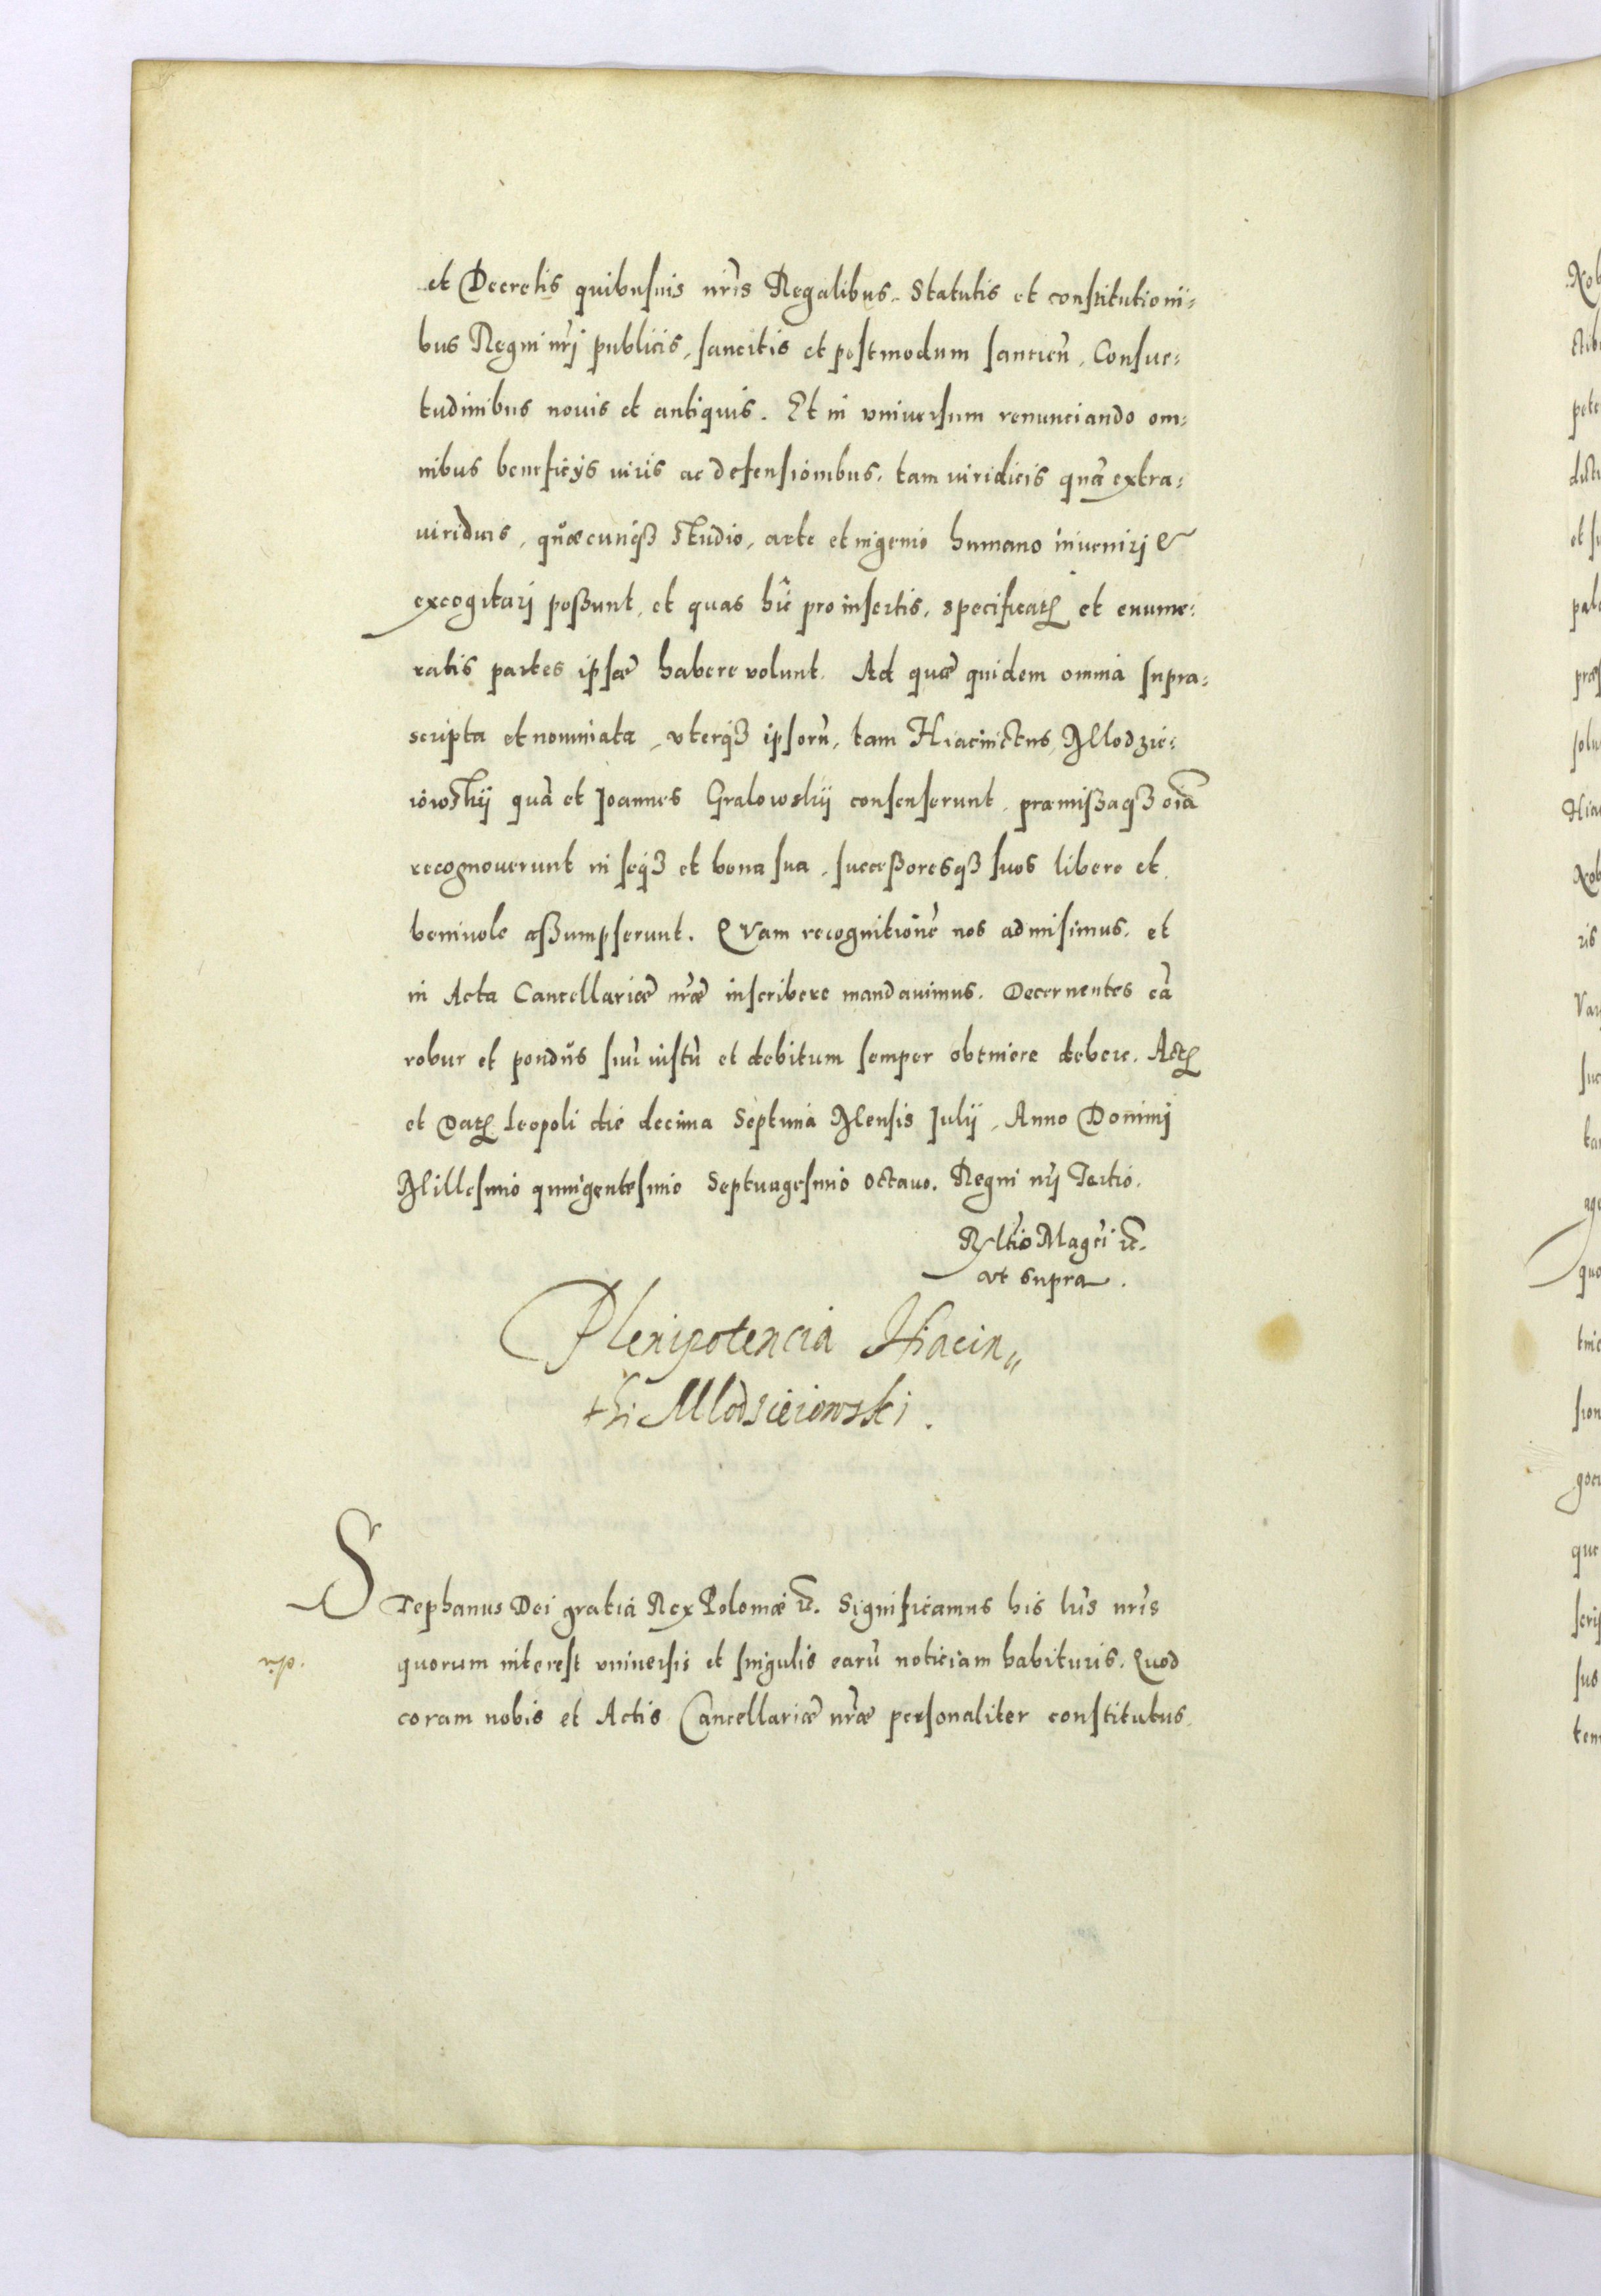 et Decretis quibusuis nr̃is Regalibus. Statutis et constitutioni=
bus Regni nr̃j publicis, sancitis et postmodum sancien̄, Consue=
tudinibus nouis et antiquis. Et in vniuersum renunciando om=
nibus beneficÿs iuris ac defensionibus, tam iuridicis quā extra=
iuridicis, quæcunqȝ studio, arte et ingenio humano inuenirj &
excogitarj poßunt, et quas hîc pro insertis, specificatꝭ et enume=
ratis partes ipsæ habere volunt. Ad quæ quidem omnia supra=
scripta et nominata, vterqȝ ipsorū, tam Hiacinctus Mlodzie=
iowskij quā et Joannes Gralowskij consenserunt, præmißaqȝ oĩa
recognouerunt in seqȝ et bona sua, succeßoresqȝ suos libere et
beniuole aßumpserunt. QVam recognitionē nos admisimus, et
in Acta Cancellariæ nr̃æ inscribere mandauimus. Decernentes eā
robur et pondus suū iustū et debitum semper obtinere debere. Actꝭ
et Datꝭ Leopoli die decima Septima Mensis Julij, Anno Dominj
Millesimo quingentesimo Septuagesimo octauo. Regni nr̃j Tertio.
Rłtio Mag̃ci &c̃.
vt supra.
Plenipotencia Hiacin„
thi Mlodscieiowski.
STephanus Dei gratia Rex Poloniæ &c̃. Significamus his lr̃is nr̃is
quorum interest vniuersis et singulis earū noticiam habituris. Quod
coram nobis et Actis Cancellariæ nr̃æ personaliter constitutus